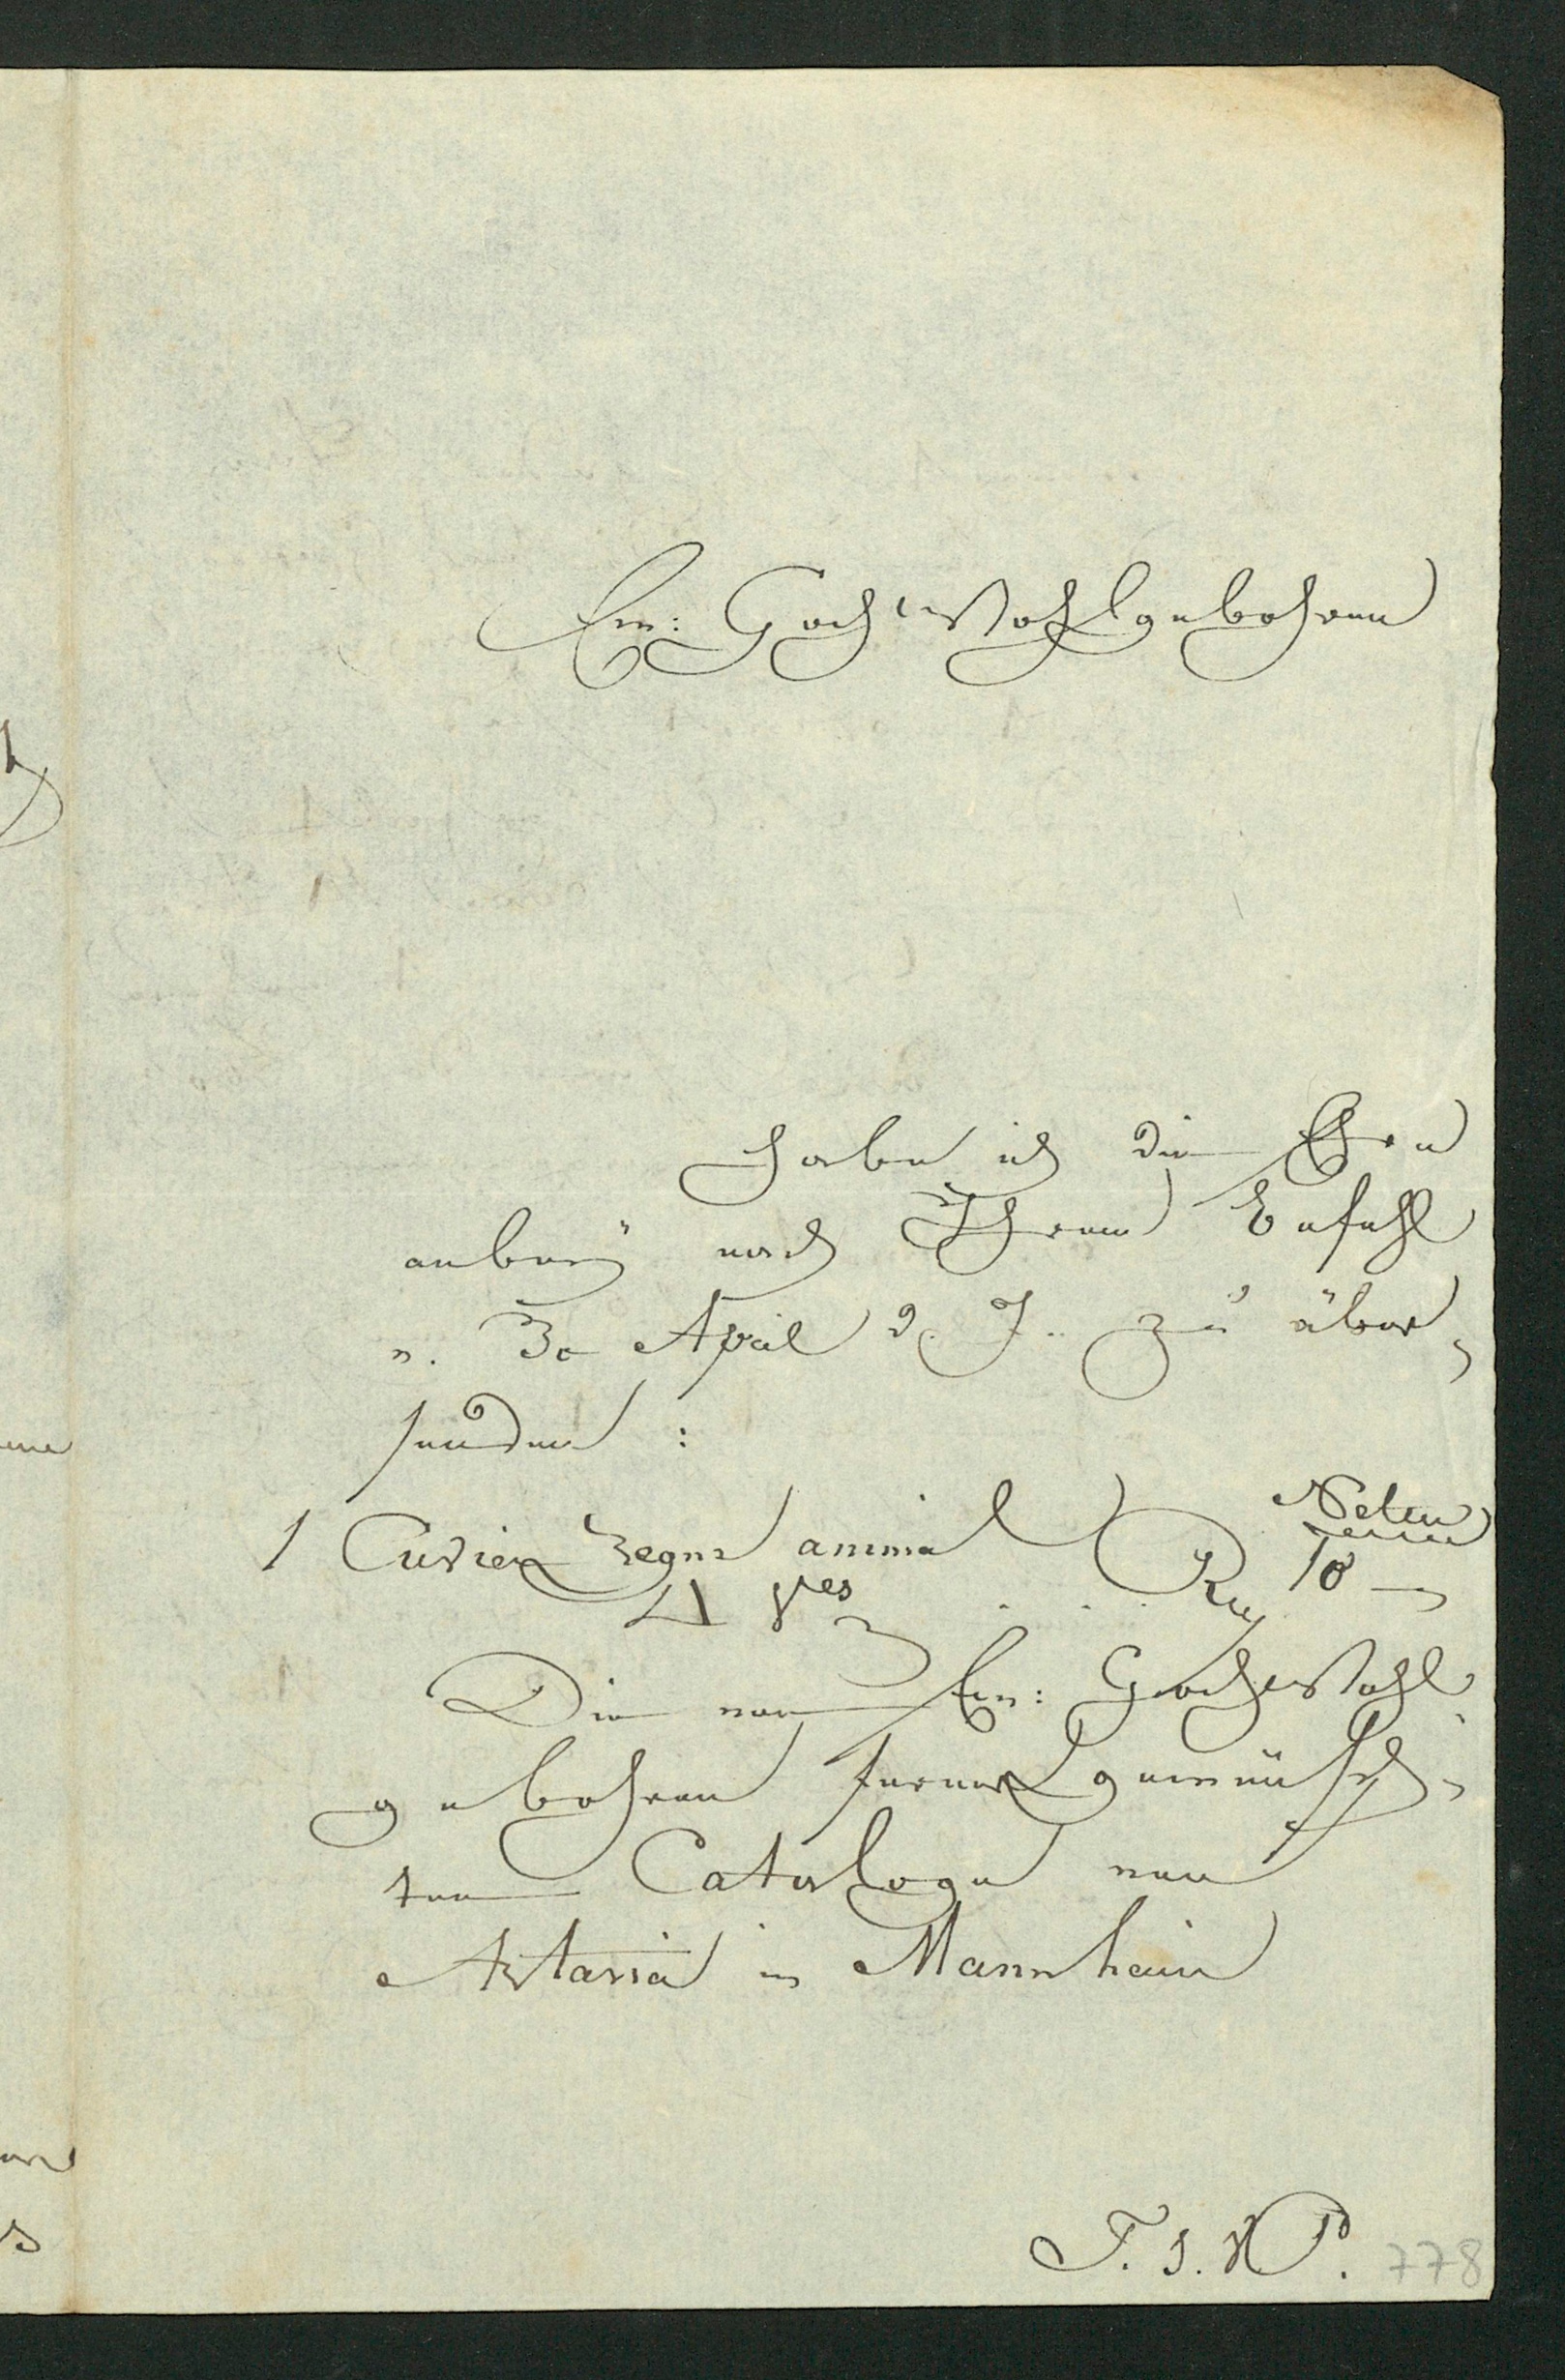 Ew: Hochwohlgebohren
habe ich die Ehre
anbey nach Ihrem Befehl
v. 30 April d. J. zu über-
senden:
1 Cuvier regne animal
Netto
10
4 Vol
Die von Ew: Hochwohl
gebohren ferner gewünsch-
ten Cataloge von
Artaria in Mannheim
T. S. V. P.
778